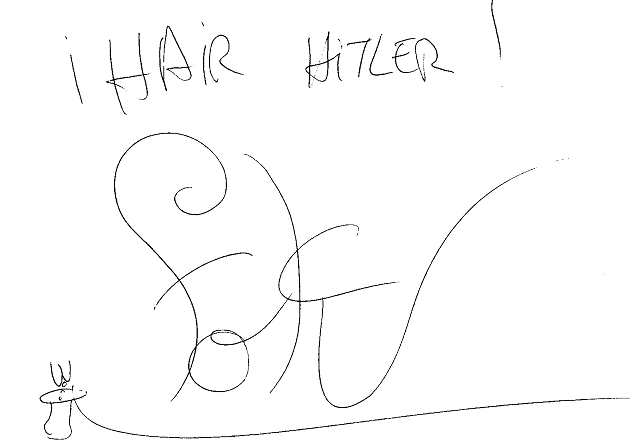 ¡HAIR HITLER!